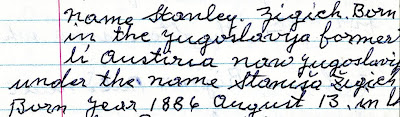 Name Stanley. Zigich. Born
in the yugoslavija former
li Austiria now yugoslavij
under the name Staniša Žigich
Born year 1886 August 13. in